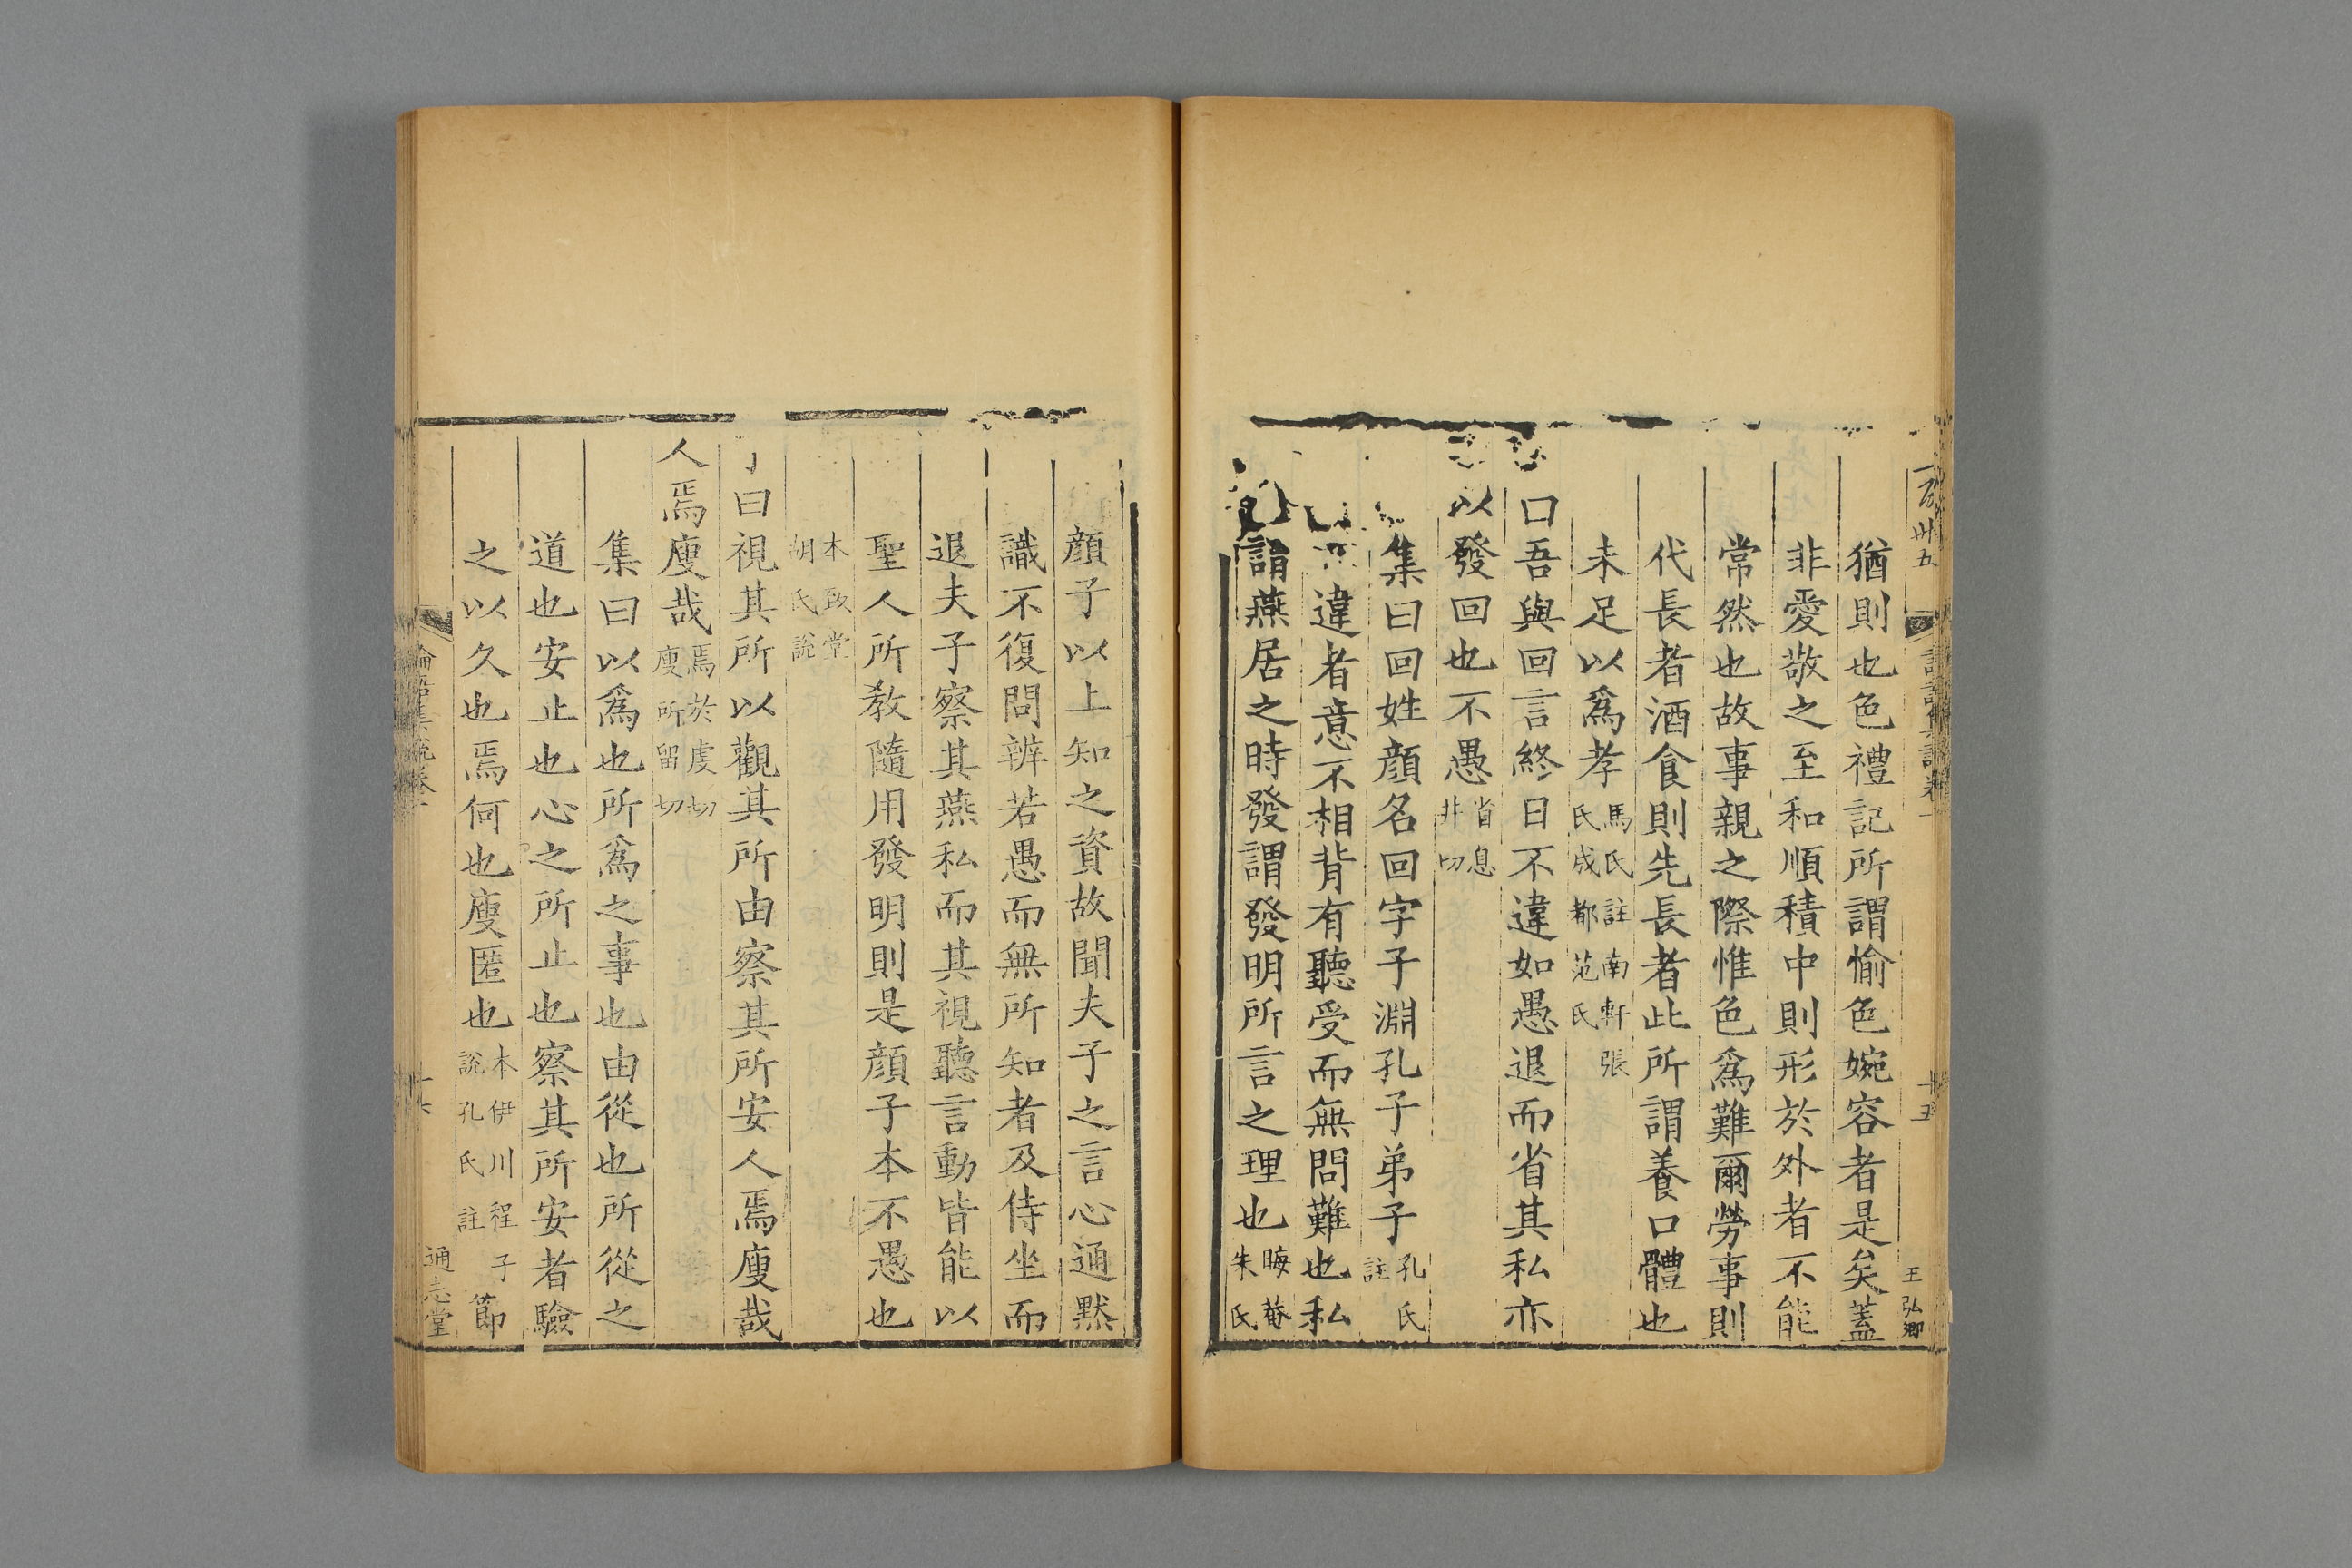 猶則也色禮記所謂愉色婉容者是矣蓋
非愛敬之至和順積中則形於外者不能
常然也故事親之際惟色爲難爾勞事則
代長者酒食則先長者此所謂養口體也
未足以爲孝馬氏註南軒張氏成都范氏
曰吾與回言終日不違如愚退而省其私亦
以發回也不愚省息非切
集曰回姓顏名回字子淵孔子弟子孔氏註
違者意不相背有聽受而無問難也私
謂燕居之時發謂發明所言之理也晦菴朱氏
十五
王弘卿
顏子以上知之資故聞夫子之言心通默
識不復問辨若愚而無所知者及侍坐而
退夫子察其燕私而其視聽言動皆能以
聖人所教隨用發明則是顏子本不愚也
本致堂胡氏說
曰視其所以觀其所由察其所安人焉廋哉
人焉廋哉焉於虔切廋所留切
集曰以爲也所爲之事也由從也所從之
道也安止也心之所止也察其所安者驗
之以久也焉何也廋匿也本伊川程子說孔氏註節
論語集說卷一
十六
通志堂